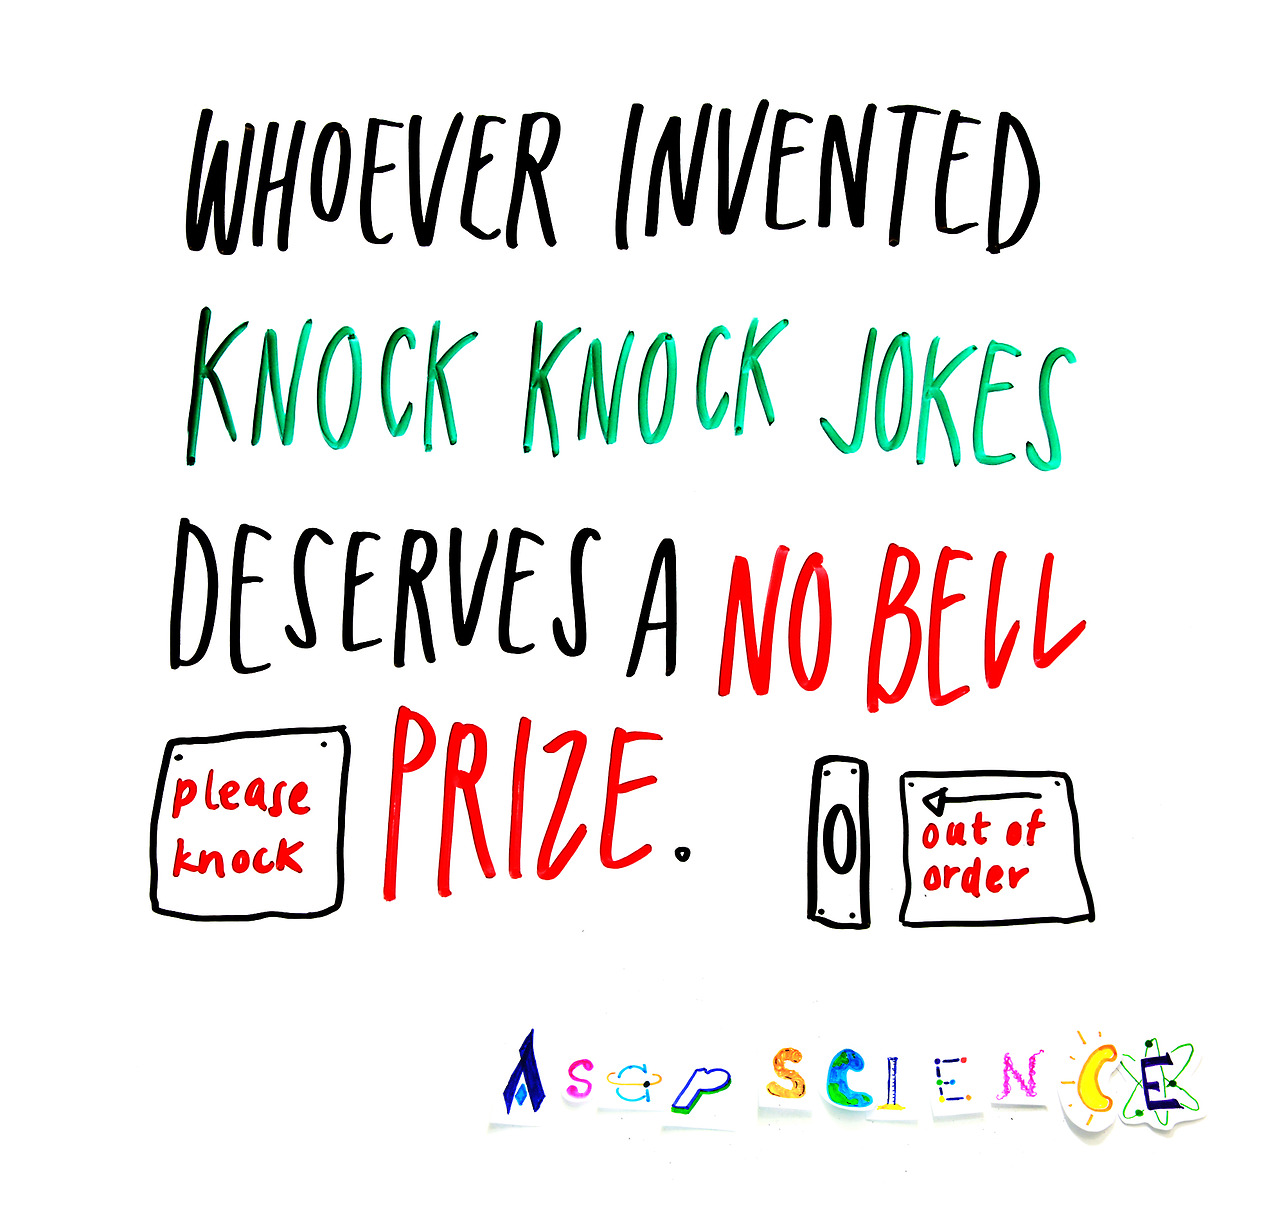 WHOEVER INVENTED
KNOCK KNOCK JOKES
DESERVES A NO BELL
PRIZE.
please
knock
out of
order
ASAP SCIENCE